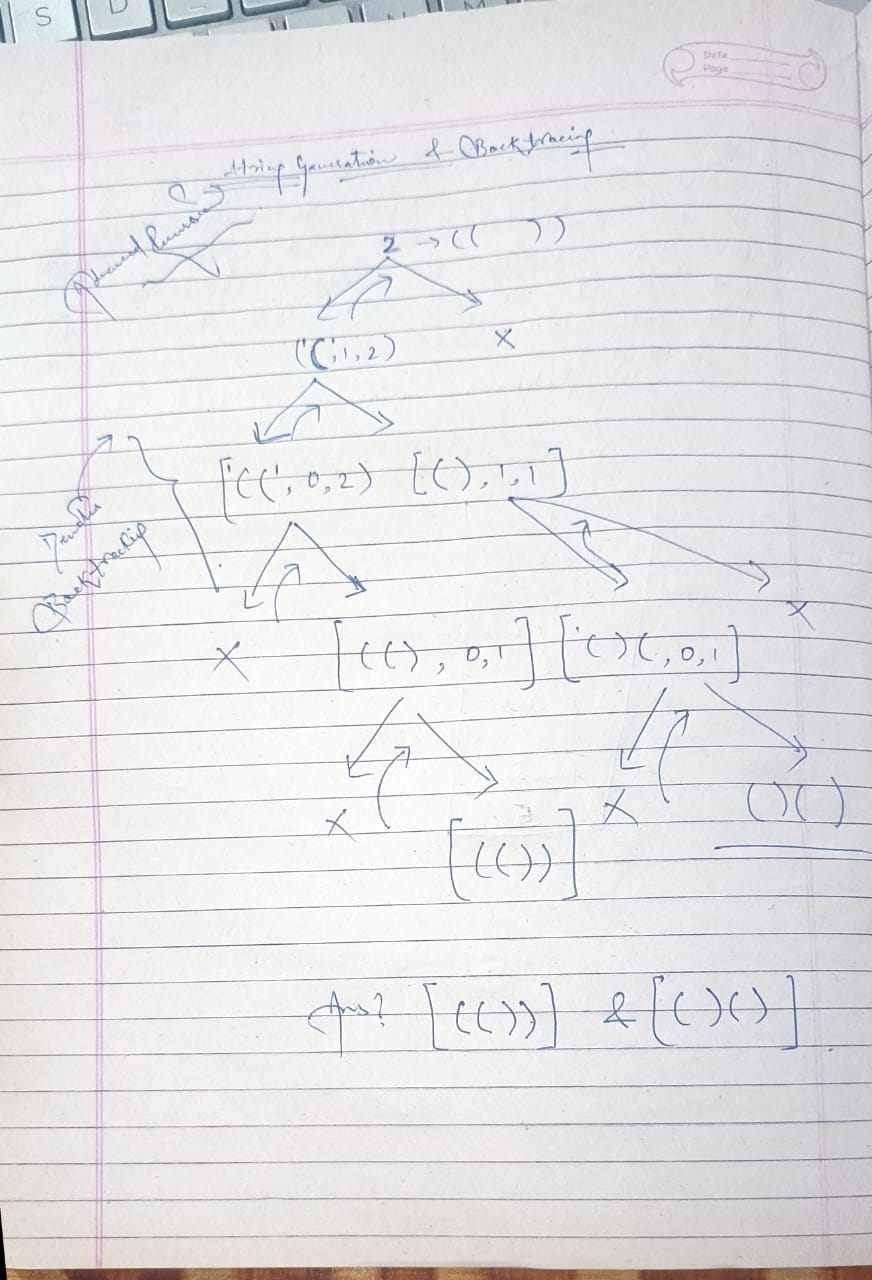 S D
Date
Page
String Generation & Backtracing
Advanced Recursion
2 → (( ))
('(', 1, 2) X
['((', 0, 2) [(), 1, 1]
Backtracking
X [((), 0, 1] ['()(, 0, 1] X
X [(())] X ()()
Ans? [(())] & [()()]